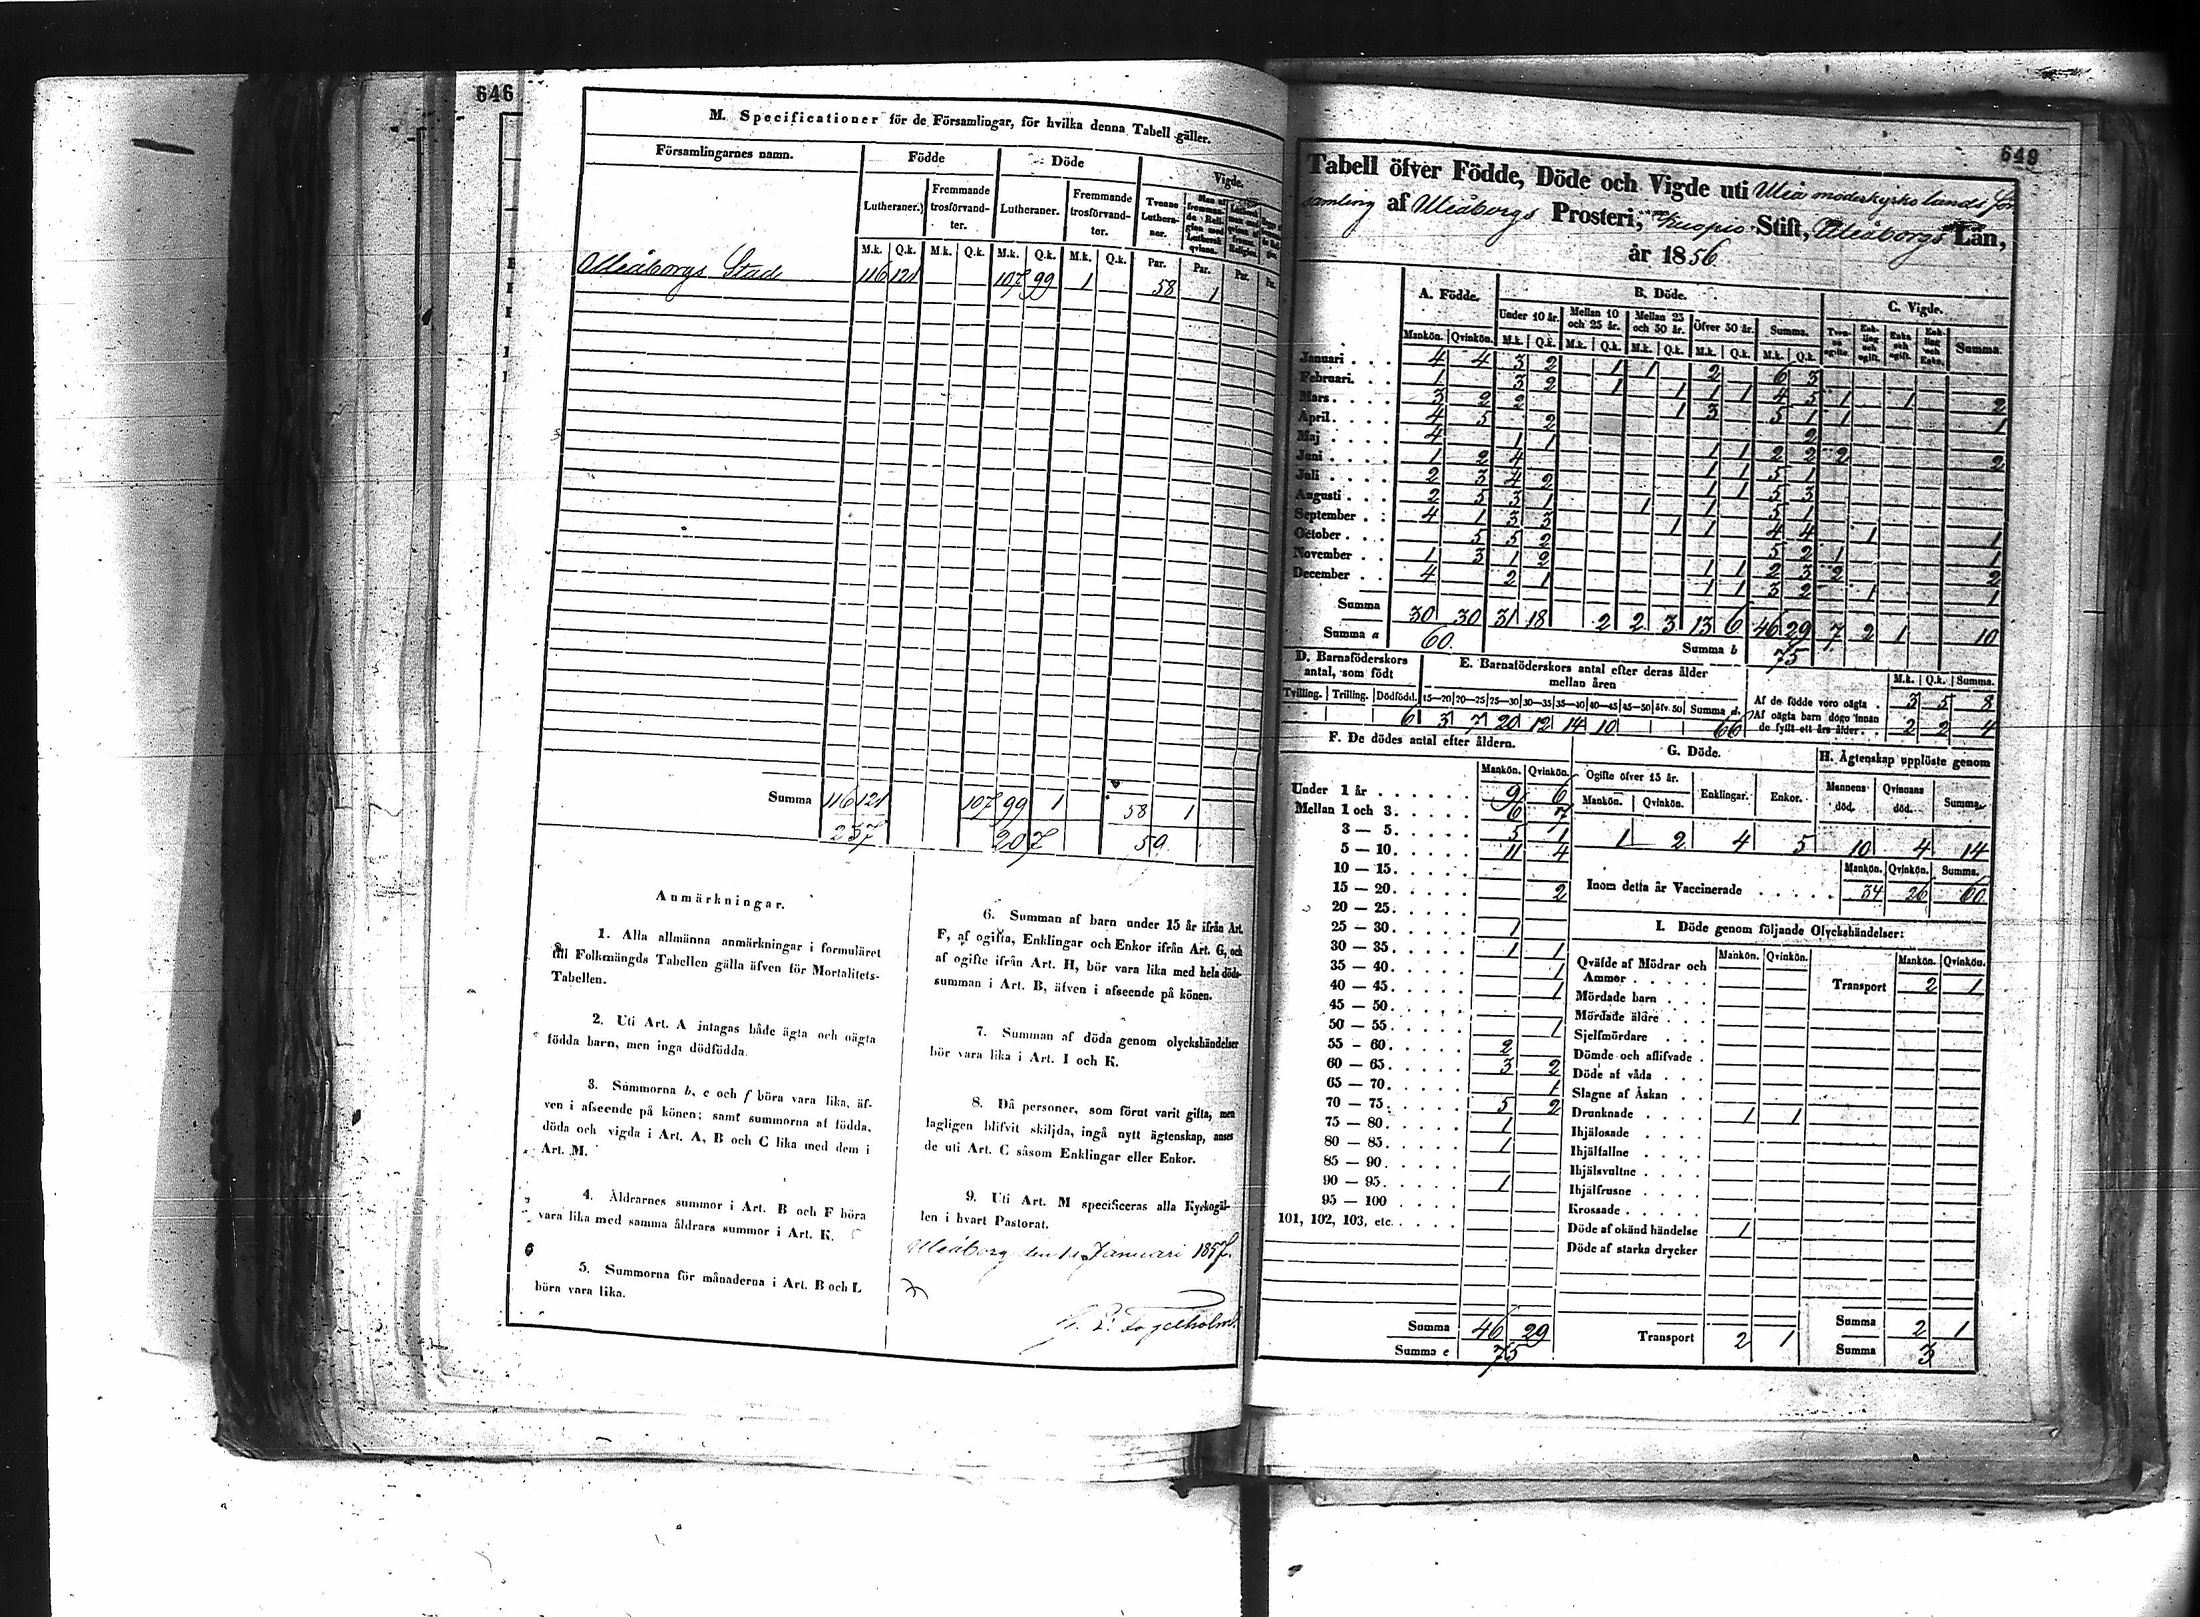 646
M. Specificationer för de Församlingar, för hvilka denna Tabell gäller.
Församlingarnes namn. Födde Döde Vigde.
Lutheraner. Fremmande trosförvandter. Lutheraner. Fremmande trosförvandter. Tvenne Lutheraner.
M.k. Q.k. M.k. Q.k. M.k. Q.k. M.k. Q.k. Par. Par. Par. Par.
Uleåborgs Stad 116 121 107 99 1 58 1
Summa 116 121 107 99 1 58 1
237 207 59
Anmärkningar.
1. Alla allmänna anmärkningar i formuläret
till Folkmängds Tabellen gälla äfven för Mortalitets-
Tabellen.
2. Uti Art. A intagas både ägta och oägta
födda barn, men inga dödfödda.
3. Summorna b, e och f böra vara lika, äf-
ven i afseende på könen; samt summorna af födda,
döda och vigda i Art. A, B och C lika med dem i
Art. M.
4. Åldrarnes summor i Art. B och F böra
vara lika med samma åldrars summor i Art. K.
5. Summorna för månaderna i Art. B och L
böra vara lika.
6. Summan af barn under 15 år ifrån Art.
F, af ogifta, Enklingar och Enkor ifrån Art. G, och
af ogifte ifrån Art. H, bör vara lika med hela döds-
summan i Art. B, äfven i afseende på könen.
7. Summan af döda genom olyckshändelser
bör vara lika i Art. I och K.
8. Då personer, som förut varit gifta, men
lagligen blifvit skiljda, ingå nytt ägtenskap, anses
de uti Art. C såsom Enklingar eller Enkor.
9. Uti Art. M specificeras alla Kyrkogäl-
len i hvart Pastorat.
Uleåborg den Januari 1857.
Fogelholm.
649
Tabell öfver Födde, Döde och Vigde uti Uleå moderkyrko lands för
samling af Uleåborgs Prosteri, Kuopio Stift, Uleåborgs Län,
år 1856
A. Födde. B. Döde. C. Vigde.
Under 10 år. Mellan 10 och 25 år. Mellan 25 och 50 år. Öfver 50 år. Summa. Summa.
Mankön. Qvinkön. M.k. Q.k. M.k. Q.k. M.k. Q.k. M.k. Q.k. M.k. Q.k.
Januari . . . 4 4 3 2 1 1 2 6 3
Februari. . . 1 3 2 1 1 1 1 4 5 1 1 2
Mars . . . . 3 2 2 1 3 5 1 1 1
April . . . . 4 5 2 2
Maj . . . . 4 1 1 1 1 2 2 2 2
Juni . . . . 1 2 4 1 1 5 1
Juli . . . . 2 3 4 2 1 1 5 3
Augusti . . . 2 5 3 1 1 1 5 1
September . . 4 1 3 3 1 1 4 4 1 1
October . . . 5 5 2 5 2 1 1
November . . 1 3 1 2 1 1 2 3 2 2
December . . 4 2 1 1 1 3 2 1 1
Summa 30 30 31 18 2 2 3 13 6 46 29 7 2 1 10
Summa a 60. Summa b 75
D. Barnaföderskors antal, som födt
E. Barnaföderskors antal efter deras ålder mellan åren
Tvilling. Trilling. Dödfödd. 15—20 20—25 25—30 30—35 35—40 40—45 45—50 öfv. 50 Summa d.
6 3 7 20 12 14 10 66
M.k. Q.k. Summa.
Af de födde voro oägta . 3 5 8
Af oägta barn dogo innan de fyllt ett års ålder. . 2 2 4
F. De dödes antal efter åldern.
Mankön. Qvinkön.
Under 1 år . . . . . . 9 6
Mellan 1 och 3. . . . . 6 7
3 — 5. . . . . 5 1
5 — 10. . . . . 11 4
10 — 15. . . . .
15 — 20. . . . . 2
20 — 25. . . . .
25 — 30. . . . . 1
30 — 35. . . . . 1 1
35 — 40. . . . . 1
40 — 45. . . . . 1
45 — 50. . . . .
50 — 55. . . . . 1
55 — 60. . . . . 2
60 — 65. . . . . 3 2
65 — 70. . . . . 1
70 — 75. . . . . 5 2
75 — 80. . . . . 1
80 — 85. . . . . 1
85 — 90. . . . .
90 — 95. . . . . 1
95 — 100 . . . .
101, 102, 103, etc. . . . .
Summa 46 29
Summa e 75
G. Döde.
Ogifte öfver 15 år. Enklingar. Enkor.
Mankön. Qvinkön.
1 2 4 5
H. Ägtenskap upplöste genom
Mannens död. Qvinnans död. Summa
10 4 14
Mankön. Qvinkön. Summa.
Inom detta år Vaccinerade . . . . . 34 26 60
I. Döde genom följande Olyckshändelser:
Mankön. Qvinkön. Mankön. Qvinkön.
Qväfde af Mödrar och Ammor . . . . . Transport 2 1
Mördade barn . . .
Mördade äldre . . .
Sjelfmördare . . .
Dömde och aflifvade .
Döde af våda . . .
Slagne af Åskan . .
Drunknade . . . . 1 1
Ihjälosade . . . .
Ihjälfallne . . . .
Ihjälsvultne . . . .
Ihjälfrusne . . . .
Krossade . . . . .
Döde af okänd händelse 1
Döde af starka drycker
Transport 2 1 Summa 2 1
Summa 3